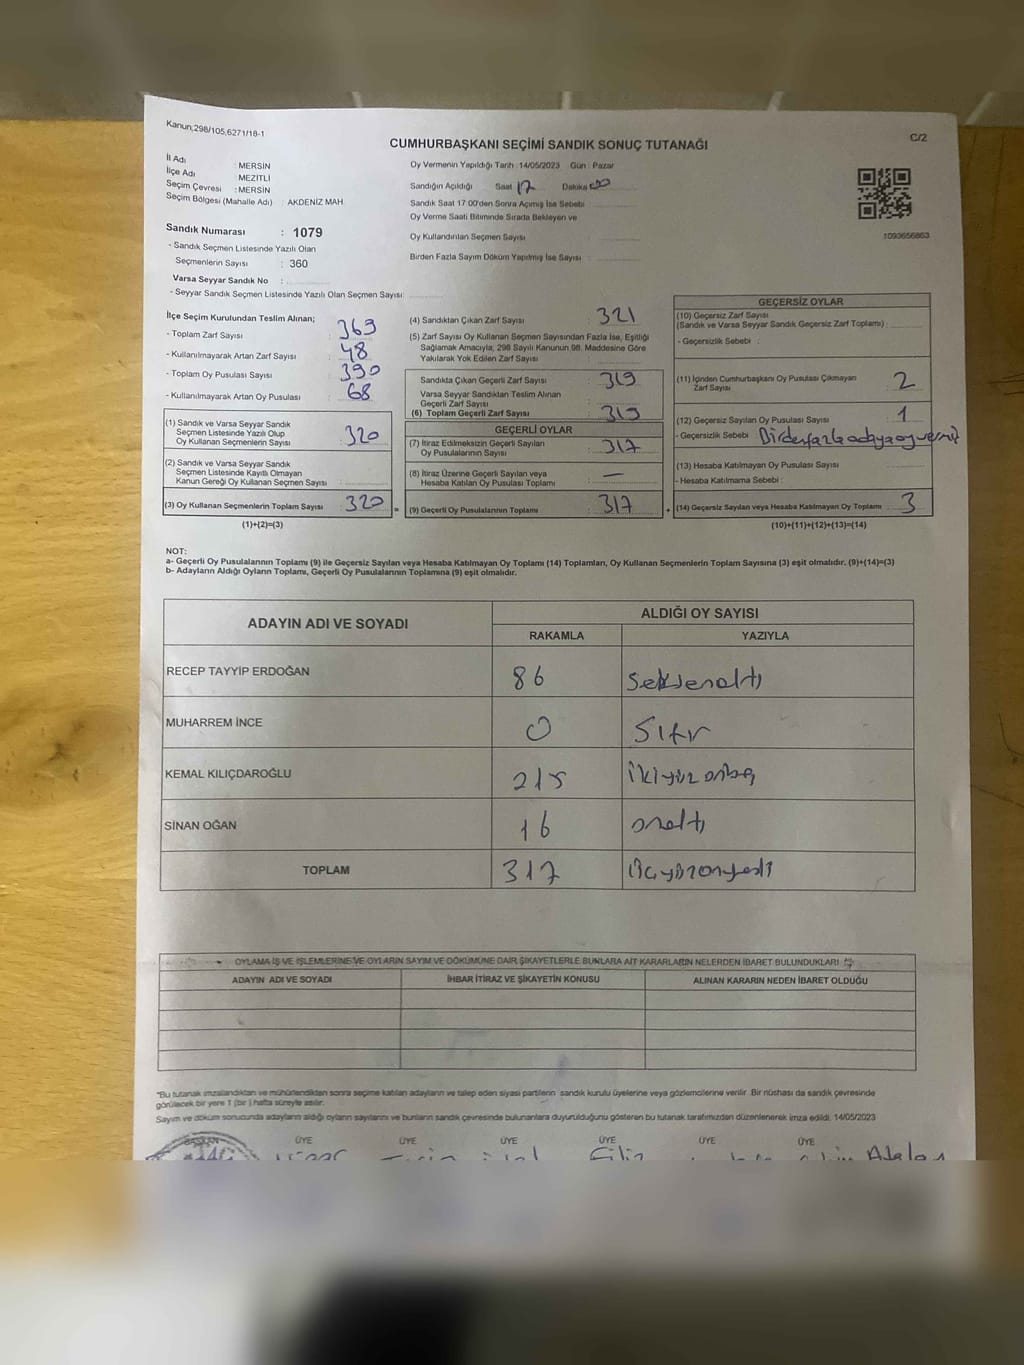 Kanun;298/105,6271/18-1
C/2
CUMHURBAŞKANI SEÇİMİ SANDIK SONUÇ TUTANAĞI
İl Adı : MERSİN
İlçe Adı : MEZİTLİ
Seçim Çevresi : MERSİN
Seçim Bölgesi (Mahalle Adı) : AKDENİZ MAH.
Sandık Numarası : 1079
- Sandık Seçmen Listesinde Yazılı Olan
Seçmenlerin Sayısı : 360
Varsa Seyyar Sandık No :
- Seyyar Sandık Seçmen Listesinde Yazılı Olan Seçmen Sayısı:
Oy Vermenin Yapıldığı Tarih : 14/05/2023 Gün : Pazar
Sandığın Açıldığı Saat 17 Dakika 00
Sandık Saat 17:00'den Sonra Açılmış İse Sebebi :
Oy Verme Saati Bitiminde Sırada Bekleyen ve
Oy Kullandırılan Seçmen Sayısı :
Birden Fazla Sayım Döküm Yapılmış İse Sayısı :
1093656863
İlçe Seçim Kurulundan Teslim Alınan;
- Toplam Zarf Sayısı : 369
- Kullanılmayarak Artan Zarf Sayısı : 48
- Toplam Oy Pusulası Sayısı : 390
- Kullanılmayarak Artan Oy Pusulası : 68
(1) Sandık ve Varsa Seyyar Sandık
Seçmen Listesinde Yazılı Olup
Oy Kullanan Seçmenlerin Sayısı : 320
(2) Sandık ve Varsa Seyyar Sandık
Seçmen Listesinde Kayıtlı Olmayan
Kanun Gereği Oy Kullanan Seçmen Sayısı :
(3) Oy Kullanan Seçmenlerin Toplam Sayısı : 320 =
(1)+(2)=(3)
(4) Sandıktan Çıkan Zarf Sayısı : 321
(5) Zarf Sayısı Oy Kullanan Seçmen Sayısından Fazla İse, Eşitliği
Sağlamak Amacıyla, 298 Sayılı Kanunun 98. Maddesine Göre
Yakılarak Yok Edilen Zarf Sayısı :
Sandıkta Çıkan Geçerli Zarf Sayısı : 319
Varsa Seyyar Sandıktan Teslim Alınan
Geçerli Zarf Sayısı :
(6) Toplam Geçerli Zarf Sayısı : 319
GEÇERLİ OYLAR
(7) İtiraz Edilmeksizin Geçerli Sayılan
Oy Pusulalarının Sayısı : 317
(8) İtiraz Üzerine Geçerli Sayılan veya
Hesaba Katılan Oy Pusulası Toplamı : —
(9) Geçerli Oy Pusulalarının Toplamı : 317 +
GEÇERSİZ OYLAR
(10) Geçersiz Zarf Sayısı
(Sandık ve Varsa Seyyar Sandık Geçersiz Zarf Toplamı) :
- Geçersizlik Sebebi :
(11) İçinden Cumhurbaşkanı Oy Pusulası Çıkmayan
Zarf Sayısı : 2
(12) Geçersiz Sayılan Oy Pusulası Sayısı : 1
- Geçersizlik Sebebi : Birden fazla adaya oy vermiş
(13) Hesaba Katılmayan Oy Pusulası Sayısı :
- Hesaba Katılmama Sebebi :
(14) Geçersiz Sayılan veya Hesaba Katılmayan Oy Toplamı : 3
(10)+(11)+(12)+(13)=(14)
NOT:
a- Geçerli Oy Pusulalarının Toplamı (9) ile Geçersiz Sayılan veya Hesaba Katılmayan Oy Toplamı (14) Toplamları, Oy Kullanan Seçmenlerin Toplam Sayısına (3) eşit olmalıdır. (9)+(14)=(3)
b- Adayların Aldığı Oyların Toplamı, Geçerli Oy Pusulalarının Toplamına (9) eşit olmalıdır.
ADAYIN ADI VE SOYADI
ALDIĞI OY SAYISI
RAKAMLA YAZIYLA
RECEP TAYYİP ERDOĞAN 86 Seksenaltı
MUHARREM İNCE 0 Sıfır
KEMAL KILIÇDAROĞLU 215 ikiyüz onbeş
SİNAN OĞAN 16 onaltı
TOPLAM 317 Üçyüzonyedi
OYLAMA İŞ VE İŞLEMLERİNE VE OYLARIN SAYIM VE DÖKÜMÜNE DAİR ŞİKAYETLERLE BUNLARA AİT KARARLARIN NELERDEN İBARET BULUNDUKLARI
ADAYIN ADI VE SOYADI İHBAR İTİRAZ VE ŞİKAYETİN KONUSU ALINAN KARARIN NEDEN İBARET OLDUĞU
*Bu tutanak imzalandıktan ve mühürlendikten sonra seçime katılan adayların ve talep eden siyasi partilerin sandık kurulu üyelerine veya gözlemcilerine verilir. Bir nüshası da sandık çevresinde
görülecek bir yere 1 (bir) hafta süreyle asılır.
Sayım ve döküm sonucunda adayların aldığı oyların sayılarını ve bunların sandık çevresinde bulunanlara duyurulduğunu gösteren bu tutanak tarafımızdan düzenlenerek imza edildi. 14/05/2023
BAŞKAN ÜYE ÜYE ÜYE ÜYE ÜYE ÜYE